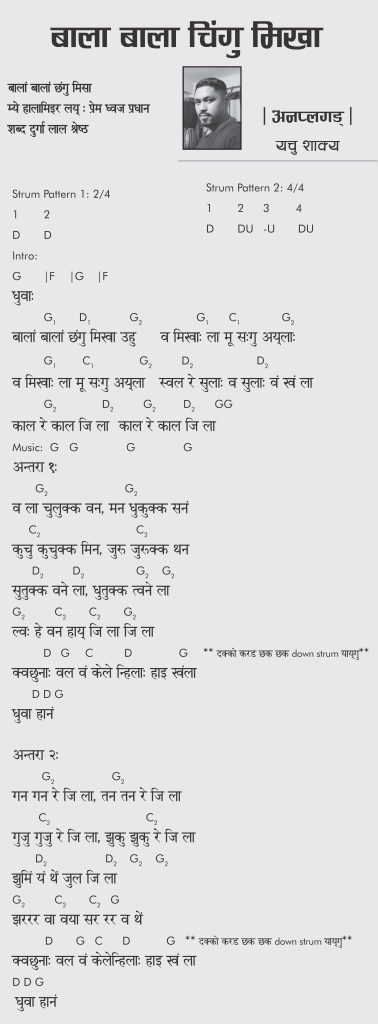 बाला बाला चिंगु मिखा
बालां बालां छंगु मिसा
म्ये हालामिइर लय् : प्रेम ध्वज प्रधान
शब्द दुर्गा लाल श्रेष्ठ
| अनप्लगड् |
यचु शाक्य
Strum Pattern 1: 2/4
1 2
D D
Strum Pattern 2: 4/4
1 2 3 4
D DU -U DU
Intro:
G |F |G |F
धुवाः
G1 D1 G2 G1 C1 G2
बालां बालां छंगु मिखा उहु व मिखाः ला मू सःगु अय्लाः
G1 C1 G2 D2 D2
व मिखाः ला मू सःगु अय्ला स्वल रे सुलाः व सुलाः वं खं ला
G2 D2 G2 D2 GG
काल रे काल जि ला काल रे काल जि ला
Music: G G G G
अन्तरा १ः
G2 G2
व ला चुलुक्क वन, मन धुकुक्क सनं
C2 C2
कुचु कुचुक्क मिन, जुरू जुरूक्क थन
D2 D2 G2 G2
सुतुक्क वने ला, धुतुक्क त्वने ला
G2 C2 C2 G2
ल्वः हे वन हाय् जि ला जि ला
D G C D G ** दक्को करड छक छक down strum याय्गु**
क्वछुनाः वल वं केले न्हिलाः हाइ खंला
D D G
धुवा हानं
अन्तरा २ः
G2 G2
गन गन रे जि ला, तन तन रे जि ला
C2 C2
गुजु गुजु रे जि ला, झुकु झुकु रे जि ला
D2 D2 G2 G2
झुमिं यं थें जुल जि ला
G2 C2 C2 G
झररर वा वया सर रर व थें
D G C D G ** दक्को करड छक छक down strum याय्गु**
क्वछुनाः वल वं केलेन्हिलाः हाइ खं ला
D D G
धुवा हानं